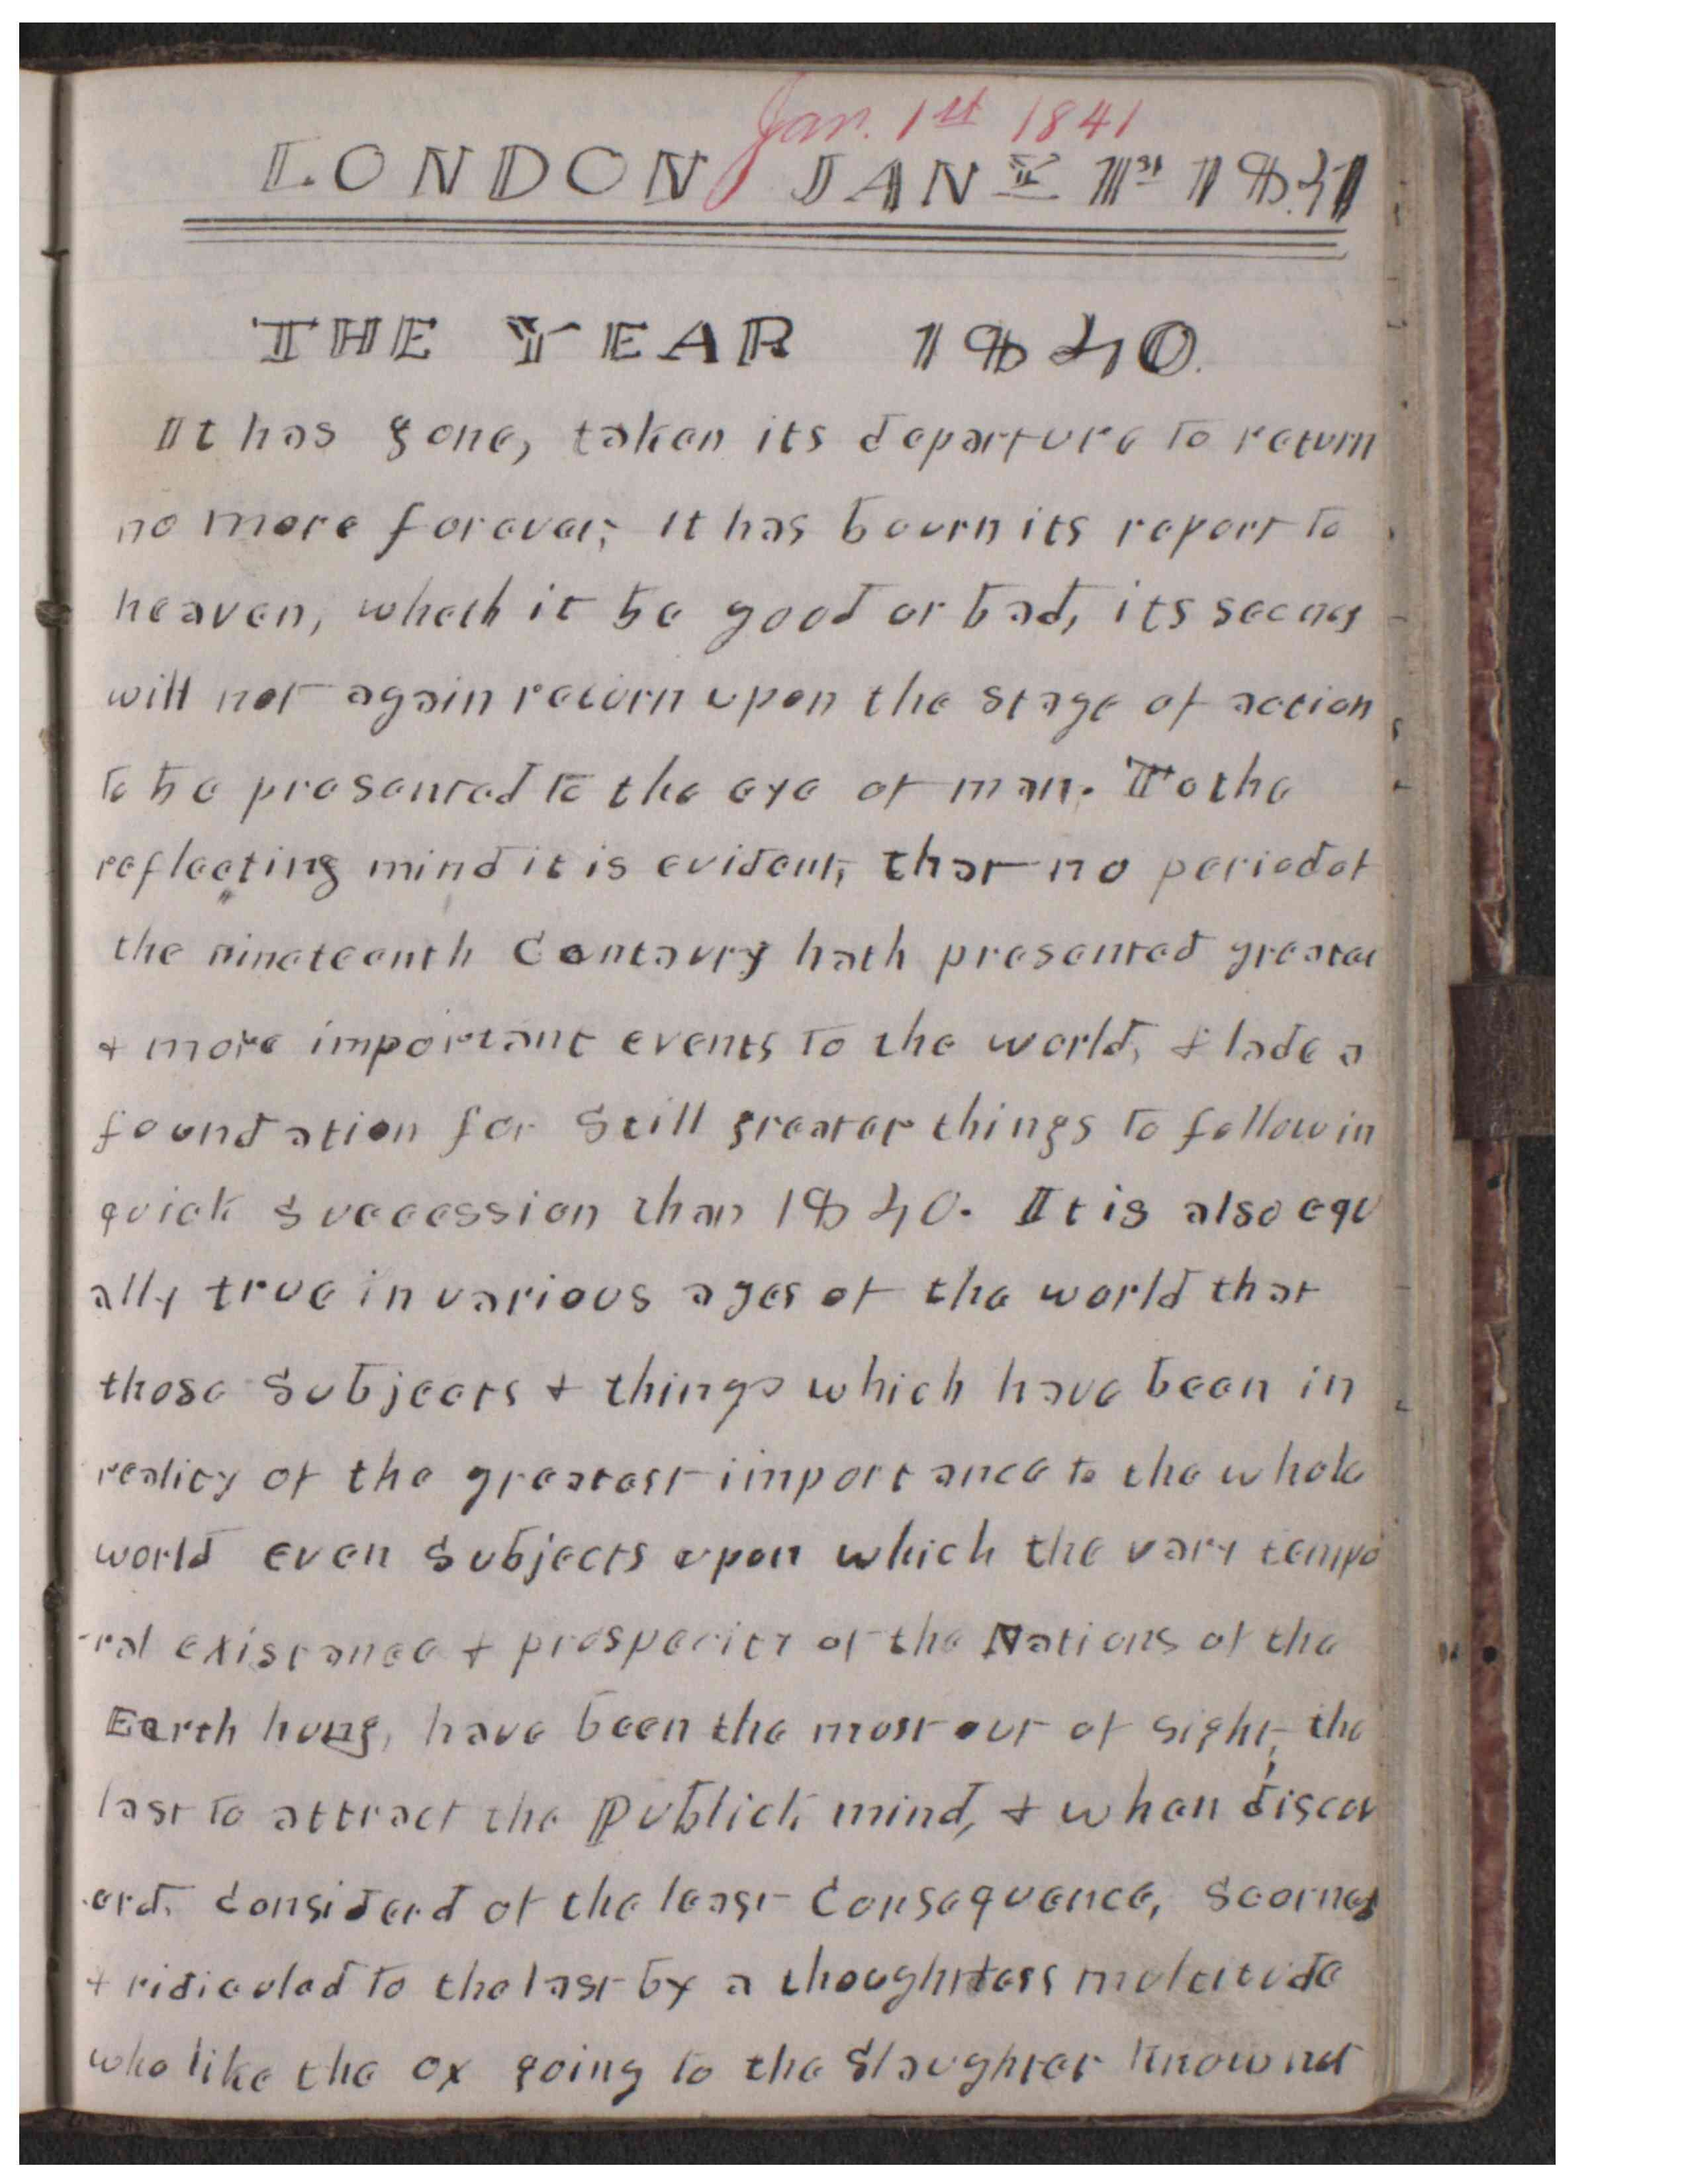 Jan. 1st 1841
LONDON JANY 1st 1841
THE YEAR 1840.
It has gone, taken its departure to return
no more forever; It has bourn its report to
heaven, wheth it be good or bad, its seenes
will not again return upon the stage of action
to be presented to the eye of man. To the
reflecting mind it is evident, that no period of
the nineteenth Centaury hath presented greater
& more important events to the world, & lade a
foundation for still greater things to follow in
quick succession than 1840. It is also equ
ally true in various ages of the world that
those subjects & things which have been in
reality of the greatest importance to the whole
world even subjects upon which the vary tempo
-ral existance & prosperity of the Nations of the
Earth hung, have been the most out of sight, the
last to attract the Publick mind, & when discov
erd, Considerd of the least Consequence, scorned
& ridiculed to the last by a thoughtless multitude
who like the ox going to the slaughter know not